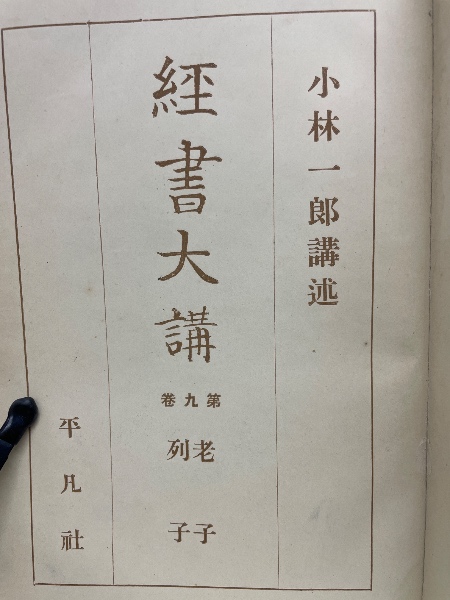 小林一郎講述
經書大講
第九卷
老子
列子
平凡社